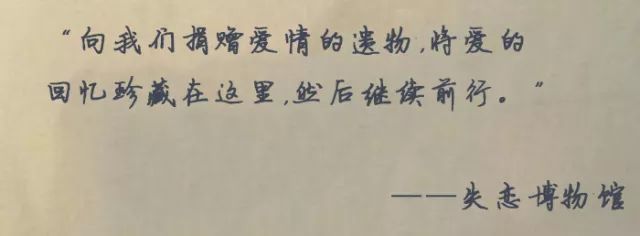 “向我们捐赠爱情的遗物,将爱的
回忆珍藏在这里,然后继续前行。”
——失恋博物馆